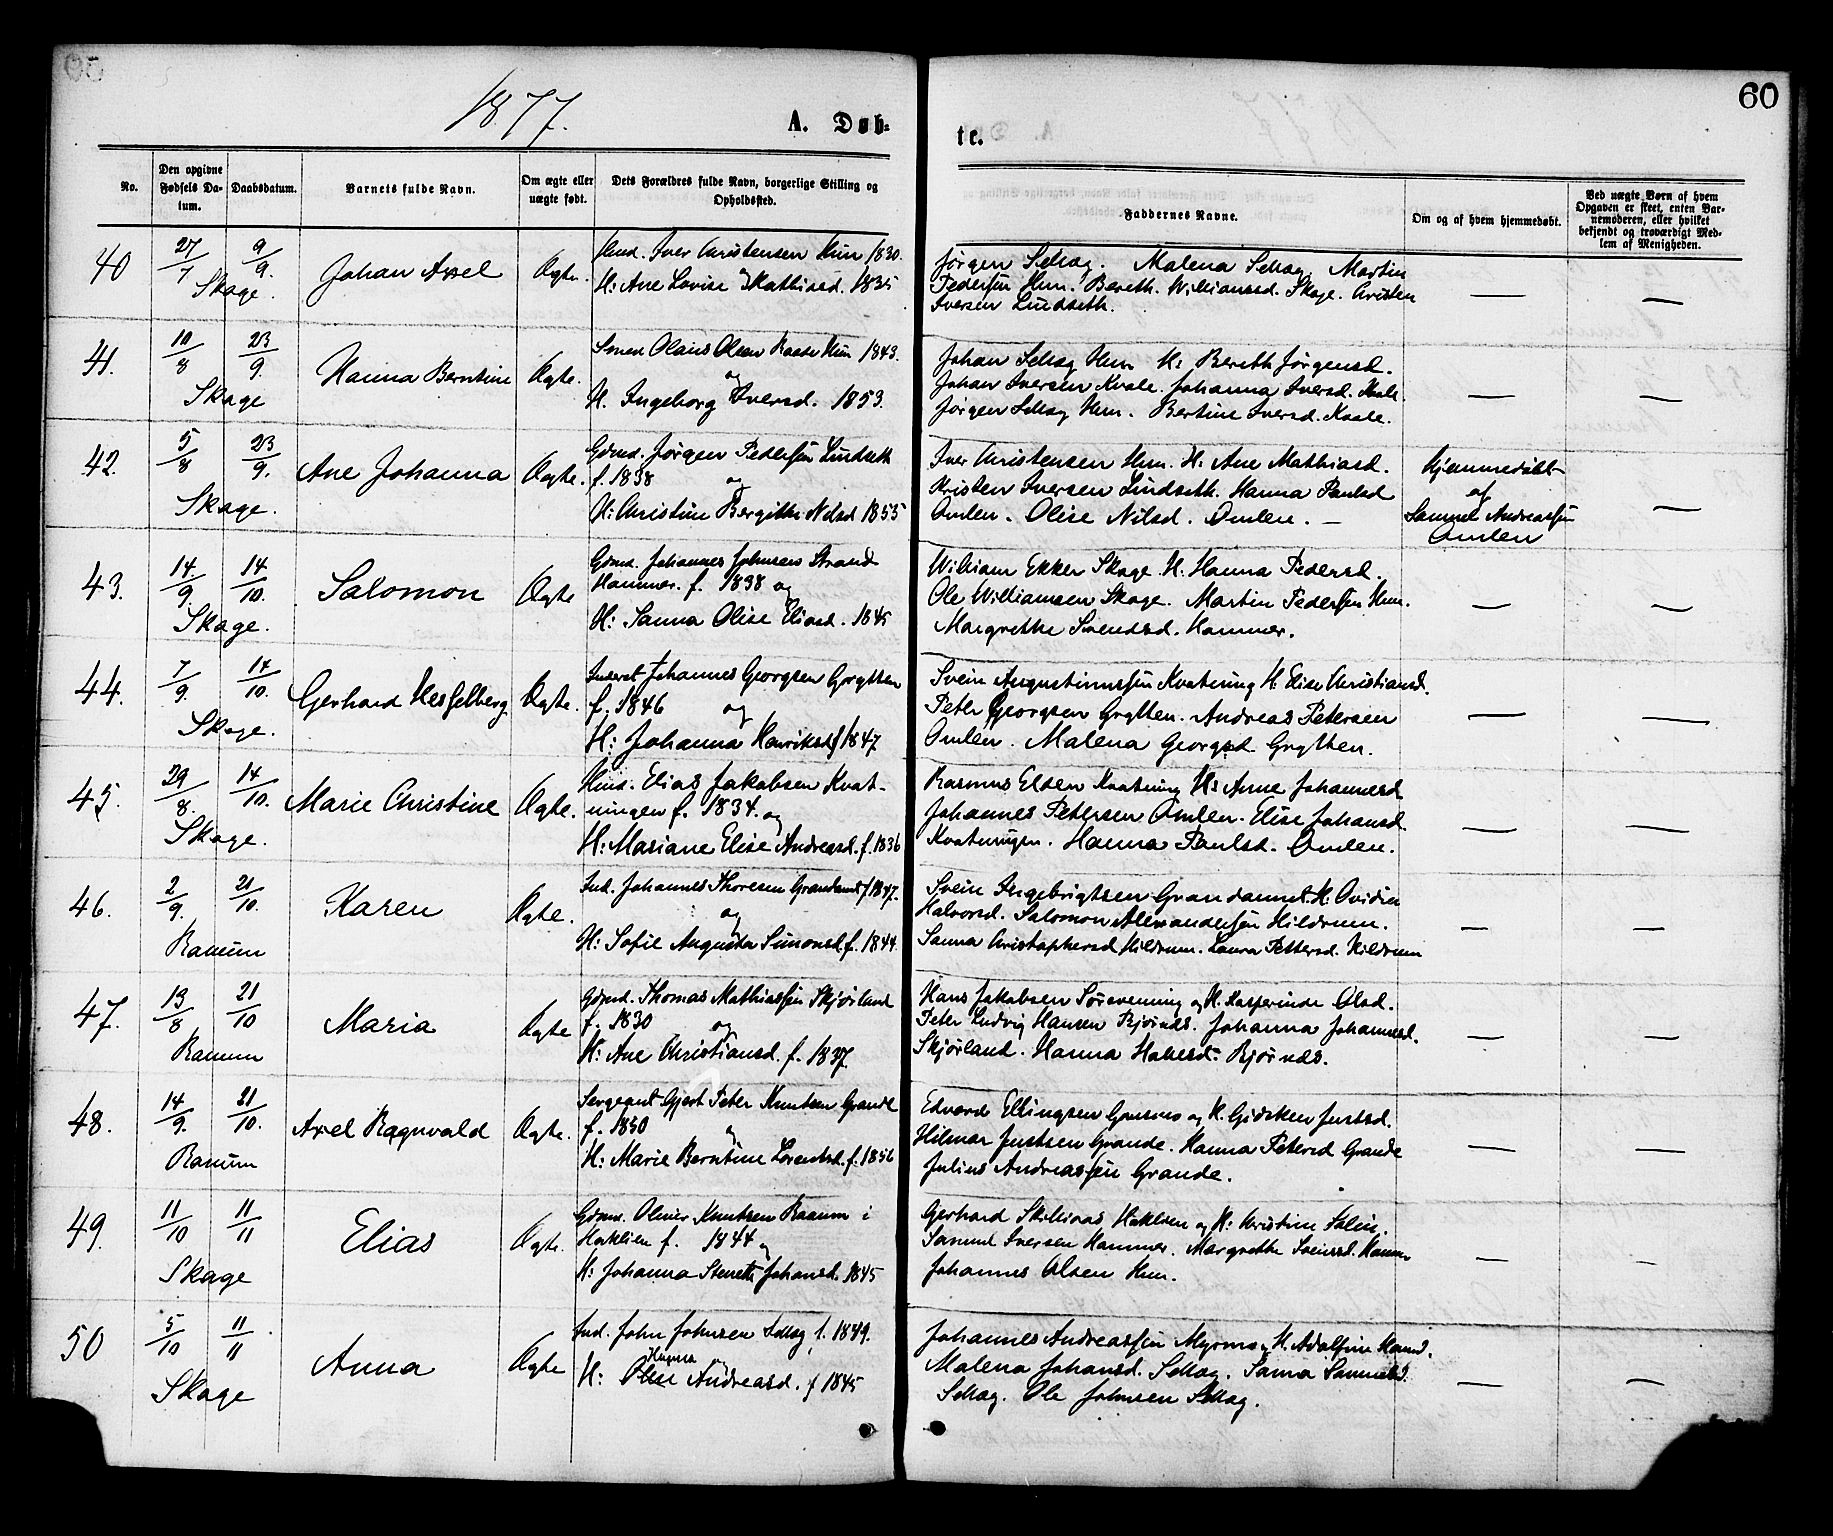 60
1877.
A. Døb-
te.
No.
Den opgivne Fødsels Da-tum.
Daabsdatum.
Barnets fulde Navn.
Om ægte eller uægte født.
Dets Forældres fulde Navn, borgerlige Stilling og Opholdssted.
Faddernes Navne.
Om og af hvem hjemmedøbt.
Ved uægte Børn af hvem Opgaven er skeet, enten Bar-nemoderen, eller hvilket bekjendt og troværdigt Med-lem af Menigheden.
40 27/7 9/9. Johan Axel Ægte. Iver Christensen Hun 1830.
Skage. H: Ane Lovise Mathiasd. 1835
Jørgen Selias. Malena Martin
Pedersen Hun. Bereth Williamsd. Skage. Cristen
Iversen Lindseth. — —
41. 10/8 23/9. Hanna Berntine Ægte. Olaus Olsen Hun 1843.
og
Skage H. Ingeborg Iversd. 1853.
Johan Hun H: Bereth Jørgensd.
Johan Iversen Kvale. Johanna Iversd. Kvale.
Jørgen Hun. Bertine Iversd. Kvale. — —
42. 5/8 23/9. Ane Johanna Ægte. Gdmd. Jørgen Pedersen Lindseth
f. 1838 og
Skage. H: Christine Bergitte Nilsd 1855
Iver Christensen Hun. H: Ane Mathiasd.
Kristen Iversen Lindseth. Hanna Paulsd
Omlen. Olise Nilsd. Omlen. —
Hjemmedøbt
af
Samuel Andreassen
Omlen —
43. 14/9 14/10. Salomon Ægte Gdmd. Johannes Johnsen Strand
Hammer. f. 1838 og
Skage. H: Sanna Olise Eliasd. 1845
William Ekker Skage. H. Hanna Pedersd.
Ole Williamsen Skage. Martin Pedersen Hun.
Margrethe Svendsd. Hammer. — —
44. 7/9. 14/10. Gerhard Hesselberg Ægte. Inderst Johannes Georgsen Grytten
f. 1846 og
Skage. H: Johanna Henriksd. f 1847
Svein Augustinussen Kvatning H. Elise Christiansd.
Peter Georgsen Grytten. Andreas Petersen
Omlen. Malena Georgsd. Grytten. — —
45. 29/8. 14/10. Marie Christine Ægte. Hmd. Elias Jakobsen Kvat-
ningen f. 1834. og
Skage. H: Mariane Elise Andreasd. f. 1836
Rasmus Elden Kvatning H: Anne Johannesd
Johannes Petersen Omlen. Elise Johansd.
Kvatningen. Hanna Paulsd. Omlen. — —
46. 2/9. 21/10. Karen Ægte. Ind. Johannes Thoresen Grandaunet f 1847.
og
Ranum H: Sofie Augusta Simonsd. f. 1844.
Svein Ingebrigtsen Grandaunet. H: Ovidia
Halvorsd. Salomon Alexandersen Hildrum.
Sanna Christophersd Hildrum. Laura Pettersd. Hildrum — —
47. 13/8 21/10 Maria Ægte Gdmd. Thomas Mathiassen Skjørland
f. 1830 og
Ranum H: Ane Christiansd. f. 1837.
Hans Jakobsen og H. Kasperinde Olsd.
Peter Ludvig Hansen Bjørnes. Johanna Johannesd.
Skjørland. Hanna Bjørnes. — —
48. 14/9. 21/10. Axel Ragnvald Ægte. Sergeant Gjert Peter Knutsen Grande
f. 1850 og
Ranum H: Marie Berntine Lorentsd. f. 1856
Edvard Ellingsen og H. Gjørken Justsd.
Hilmar Justsen Grande. Hanna Petersd Grande
Julius Andreassen Grande. — —
49. 11/10 11/11 Elias Ægte. Gdmd. Oliver Knutsen Ranum i
f. 1844 og
Skage H: Johanna Johansd. 1845
Gerhard og H: Christine
Samuel Iversen Hammer. Margrethe Svensd. Hamm
Johannes Olsen Hun. — —
50 5/10 11/11 Anna Ægte Ind. John Johnsen f. 1849.
Hanna og
Skage H: Andreasd. f 1845
Johannes Andreassen Myrmo og H. Adolfine
Malena Johansd. Sanna Samuelsd.
Ole Johnsen — —